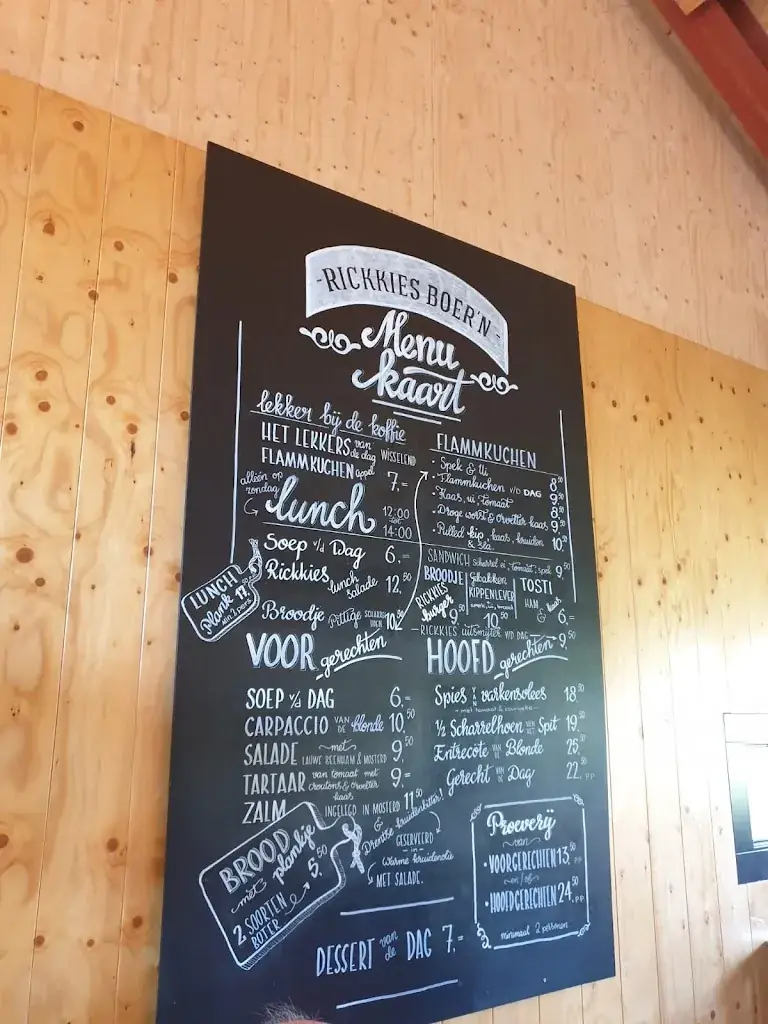 -RICKKIES BOER'N-
Menu
kaart
lekker bij de koffie
HET LEKKERS van de dag WISSELEND
FLAMMKUCHEN appel 7,=
alleen op zondag
lunch 12:00 tot 14:00
Soep v/d Dag 6,=
Rickkies lunch salade 12,50
Broodje Pittige 10,50
LUNCH
Plank 17,50
min. 2 pers
FLAMMKUCHEN
• Spek & Ui 8,50
• Flammkuchen v/d DAG 9,50
• Kaas, ui, tomaat 8,50
• Droge worst & Orvelter kaas 9,50
• Pulled kip, kaas, kruiden & sla 10,50
SANDWICH scharrel ei, tomaat, spek 9,50
BROODJE
RICKKIES burger 9,50
Gebakken KIPPENLEVER 10,50
TOSTI
HAM & kaas 6,=
-RICKKIES uitsmijter V/D DAG 9,50
VOOR gerechten
SOEP v/d DAG 6,=
CARPACCIO VAN DE blonde 10,50
SALADE met LAUWE BEENHAM & MOSTERD 9,50
TARTAAR van tomaat met croutons & Orvelter kaas 9,=
ZALM INGELEGD IN MOSTERD 11,50
& Drentse kruidenbitter!
GESERVEERD
-in-
Warme kruidenolie
MET SALADE.
HOOFD gerechten
Spies VAN varkensvlees 18,50
½ Scharrelhoen VAN HET Spit 19,50
Entrecote VAN DE Blonde 25,
Gerecht VAN DE Dag 22, PP
BROOD
plankje
met 5,50
2 SOORTEN
BOTER
Proeverij
van
• VOORGERECHTEN 13,50 PP
en/of
• HOOFDGERECHTEN 24,50 PP
minimaal 2 personen
DESSERT van de DAG 7,=